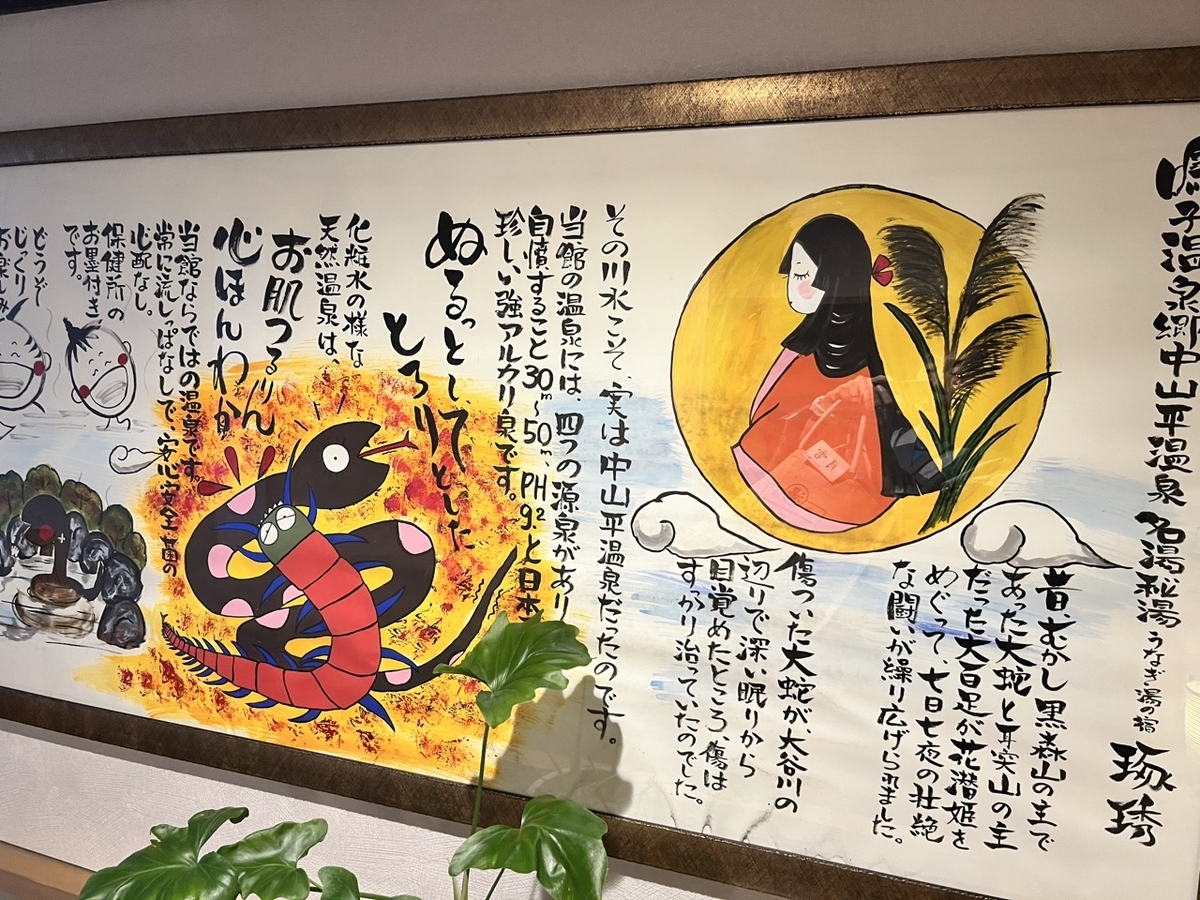 鳴子温泉郷中山平温泉 名湯秘湯 うなぎ湯の宿 琢琇
昔むかし黒森山の主で
あった大蛇と耳突山の主
だった大百足が花潜姫を
めぐって、七日七夜の壮絶
な闘いが繰り広げられました。
傷ついた大蛇が、大谷川の
辺りで深い眠りから
目覚めたところ、傷は
すっかり治っていたのでした。
その川水こそ、実は中山平温泉だったのです。
当館の温泉には、四つの源泉があり
自憤すること30m〜50m、PH9.2と日本
珍しい強アルカリ泉です。
ぬるっとして
とろりとした
化粧水の様な
天然温泉は、
お肌つるりん
心ほんわか
当館ならではの温泉です。
常に流しっぱなしで、安心安全 菌の
心配なし。
保健所の
お墨付き
です。
どうぞ
じっくり
お楽しみ